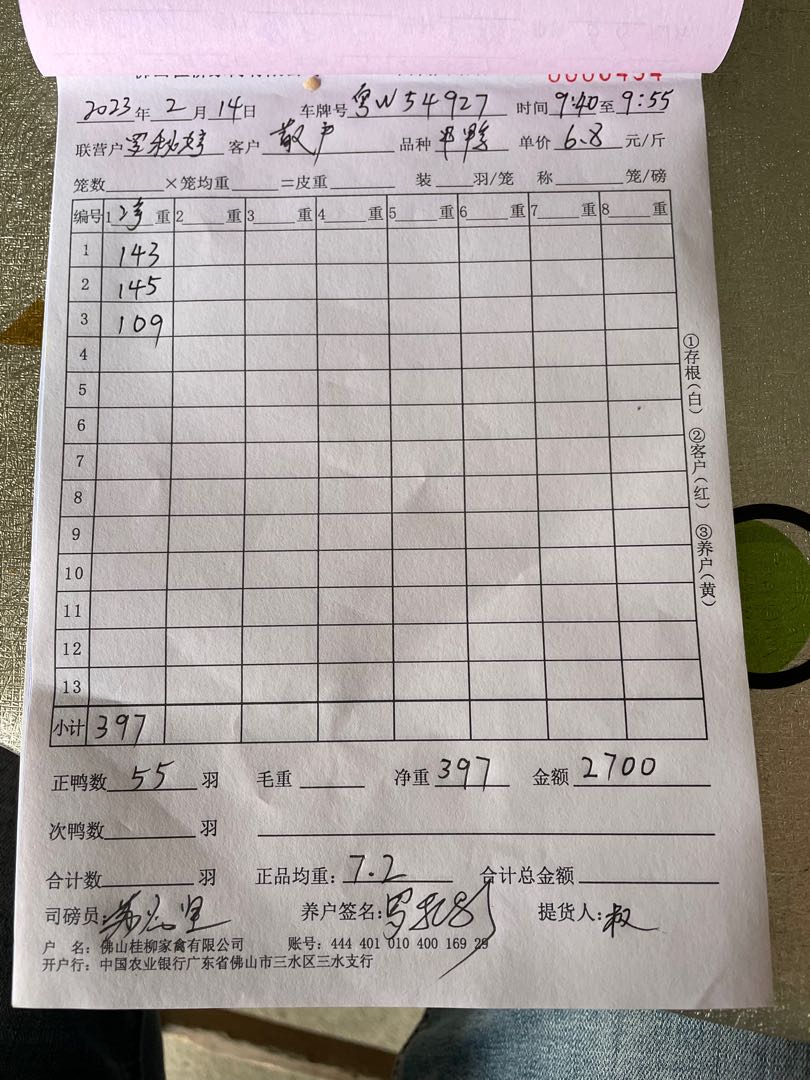 0000454
2023年2月14日 车牌号 粤W54927 时间 9:40至9:55
联营户 罗 客户 散户 品种 单价 6.8 元/斤
笼数 ×笼均重 =皮重 装 羽/笼 称 笼/磅
编号 1 重 2 重 3 重 4 重 5 重 6 重 7 重 8 重
1 143
2 145
3 109
4
5
6
7
8
9
10
11
12
13
小计 397
①存根(白) ②客户(红) ③养户(黄)
正鸭数 55 羽 毛重 净重 397 金额 2700
次鸭数 羽
合计数 羽 正品均重: 7.2 合计总金额
司磅员: 养户签名: 罗 提货人:
户 名: 佛山桂柳家禽有限公司 账号: 444 401 010 400 169 29
开户行: 中国农业银行广东省佛山市三水区三水支行